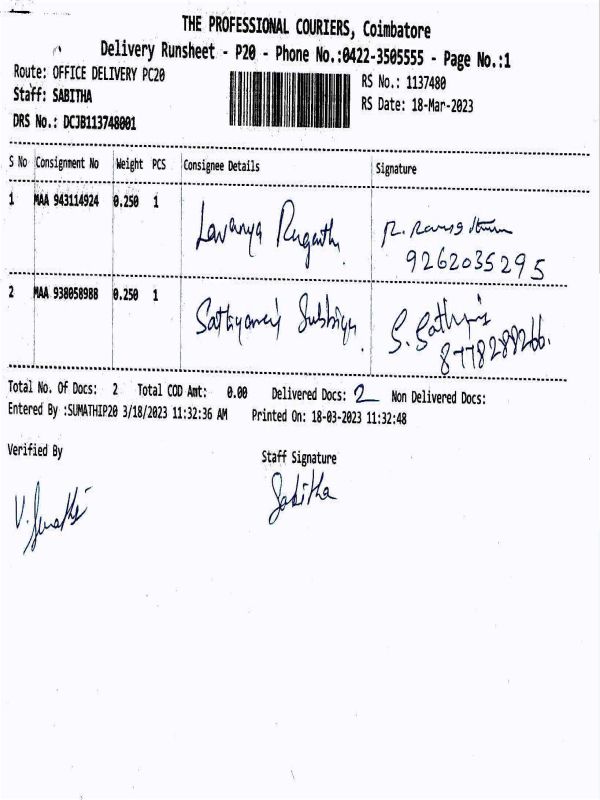 THE PROFESSIONAL COURIERS, Coimbatore
Delivery Runsheet - P20 - Phone No.:0422-3505555 - Page No.:1
Route: OFFICE DELIVERY PC20
RS No.: 1137480
Staff: SABITHA
RS Date: 18-Mar-2023
DRS No.: DCJB113748001
S No Consignment No Weight PCS Consignee Details Signature
1 MAA 943114924 0.250 1 Lavanya
9262035295
2 MAA 938058988 0.250 1
8778288266.
Total No. Of Docs: 2 Total COD Amt: 0.00 Delivered Docs: 2 Non Delivered Docs:
Entered By :SUMATHIP20 3/18/2023 11:32:36 AM Printed On: 18-03-2023 11:32:48
Verified By
Staff Signature
Sabitha